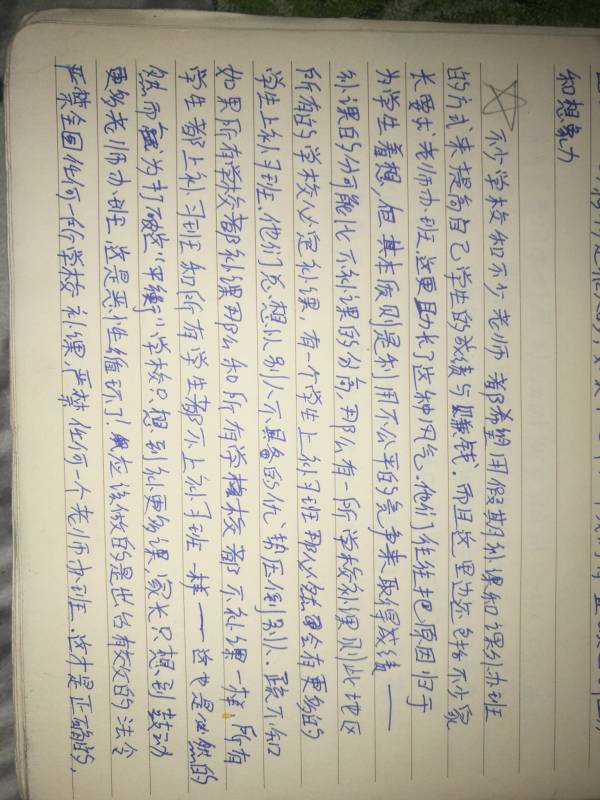 和想象力
不少学校和不少老师都希望用假期补课和课外办班
的方式来提高自己学生的成绩与赚钱.而且这里边还包括不少家
长要求老师办班.这更助长了这种风气.他们往往把原因归于
为学生着想,但其本质则是利用不公平的竞争来取得成绩——
补课的分可能比不补课的分高,那么有一所学校补课则此地区
所有的学校必定补课,有一个学生上补习班那必然会有更多的
学生上补习班.他们总想以别人不具备的优势压倒别人.疏不知
如果所有学校都补课那么和所有学校都不补课一样,所有
学生都上补习班和所有学生都不上补习班一样——这也是必然的
然而为打破这“平衡”学校只想到补更多课家长只想到鼓动
更多老师办班.这是恶性循环了!应该做的是出台有效的法令
严禁全国任何一所学校补课,严禁任何一个老师办班.这才是正确的.